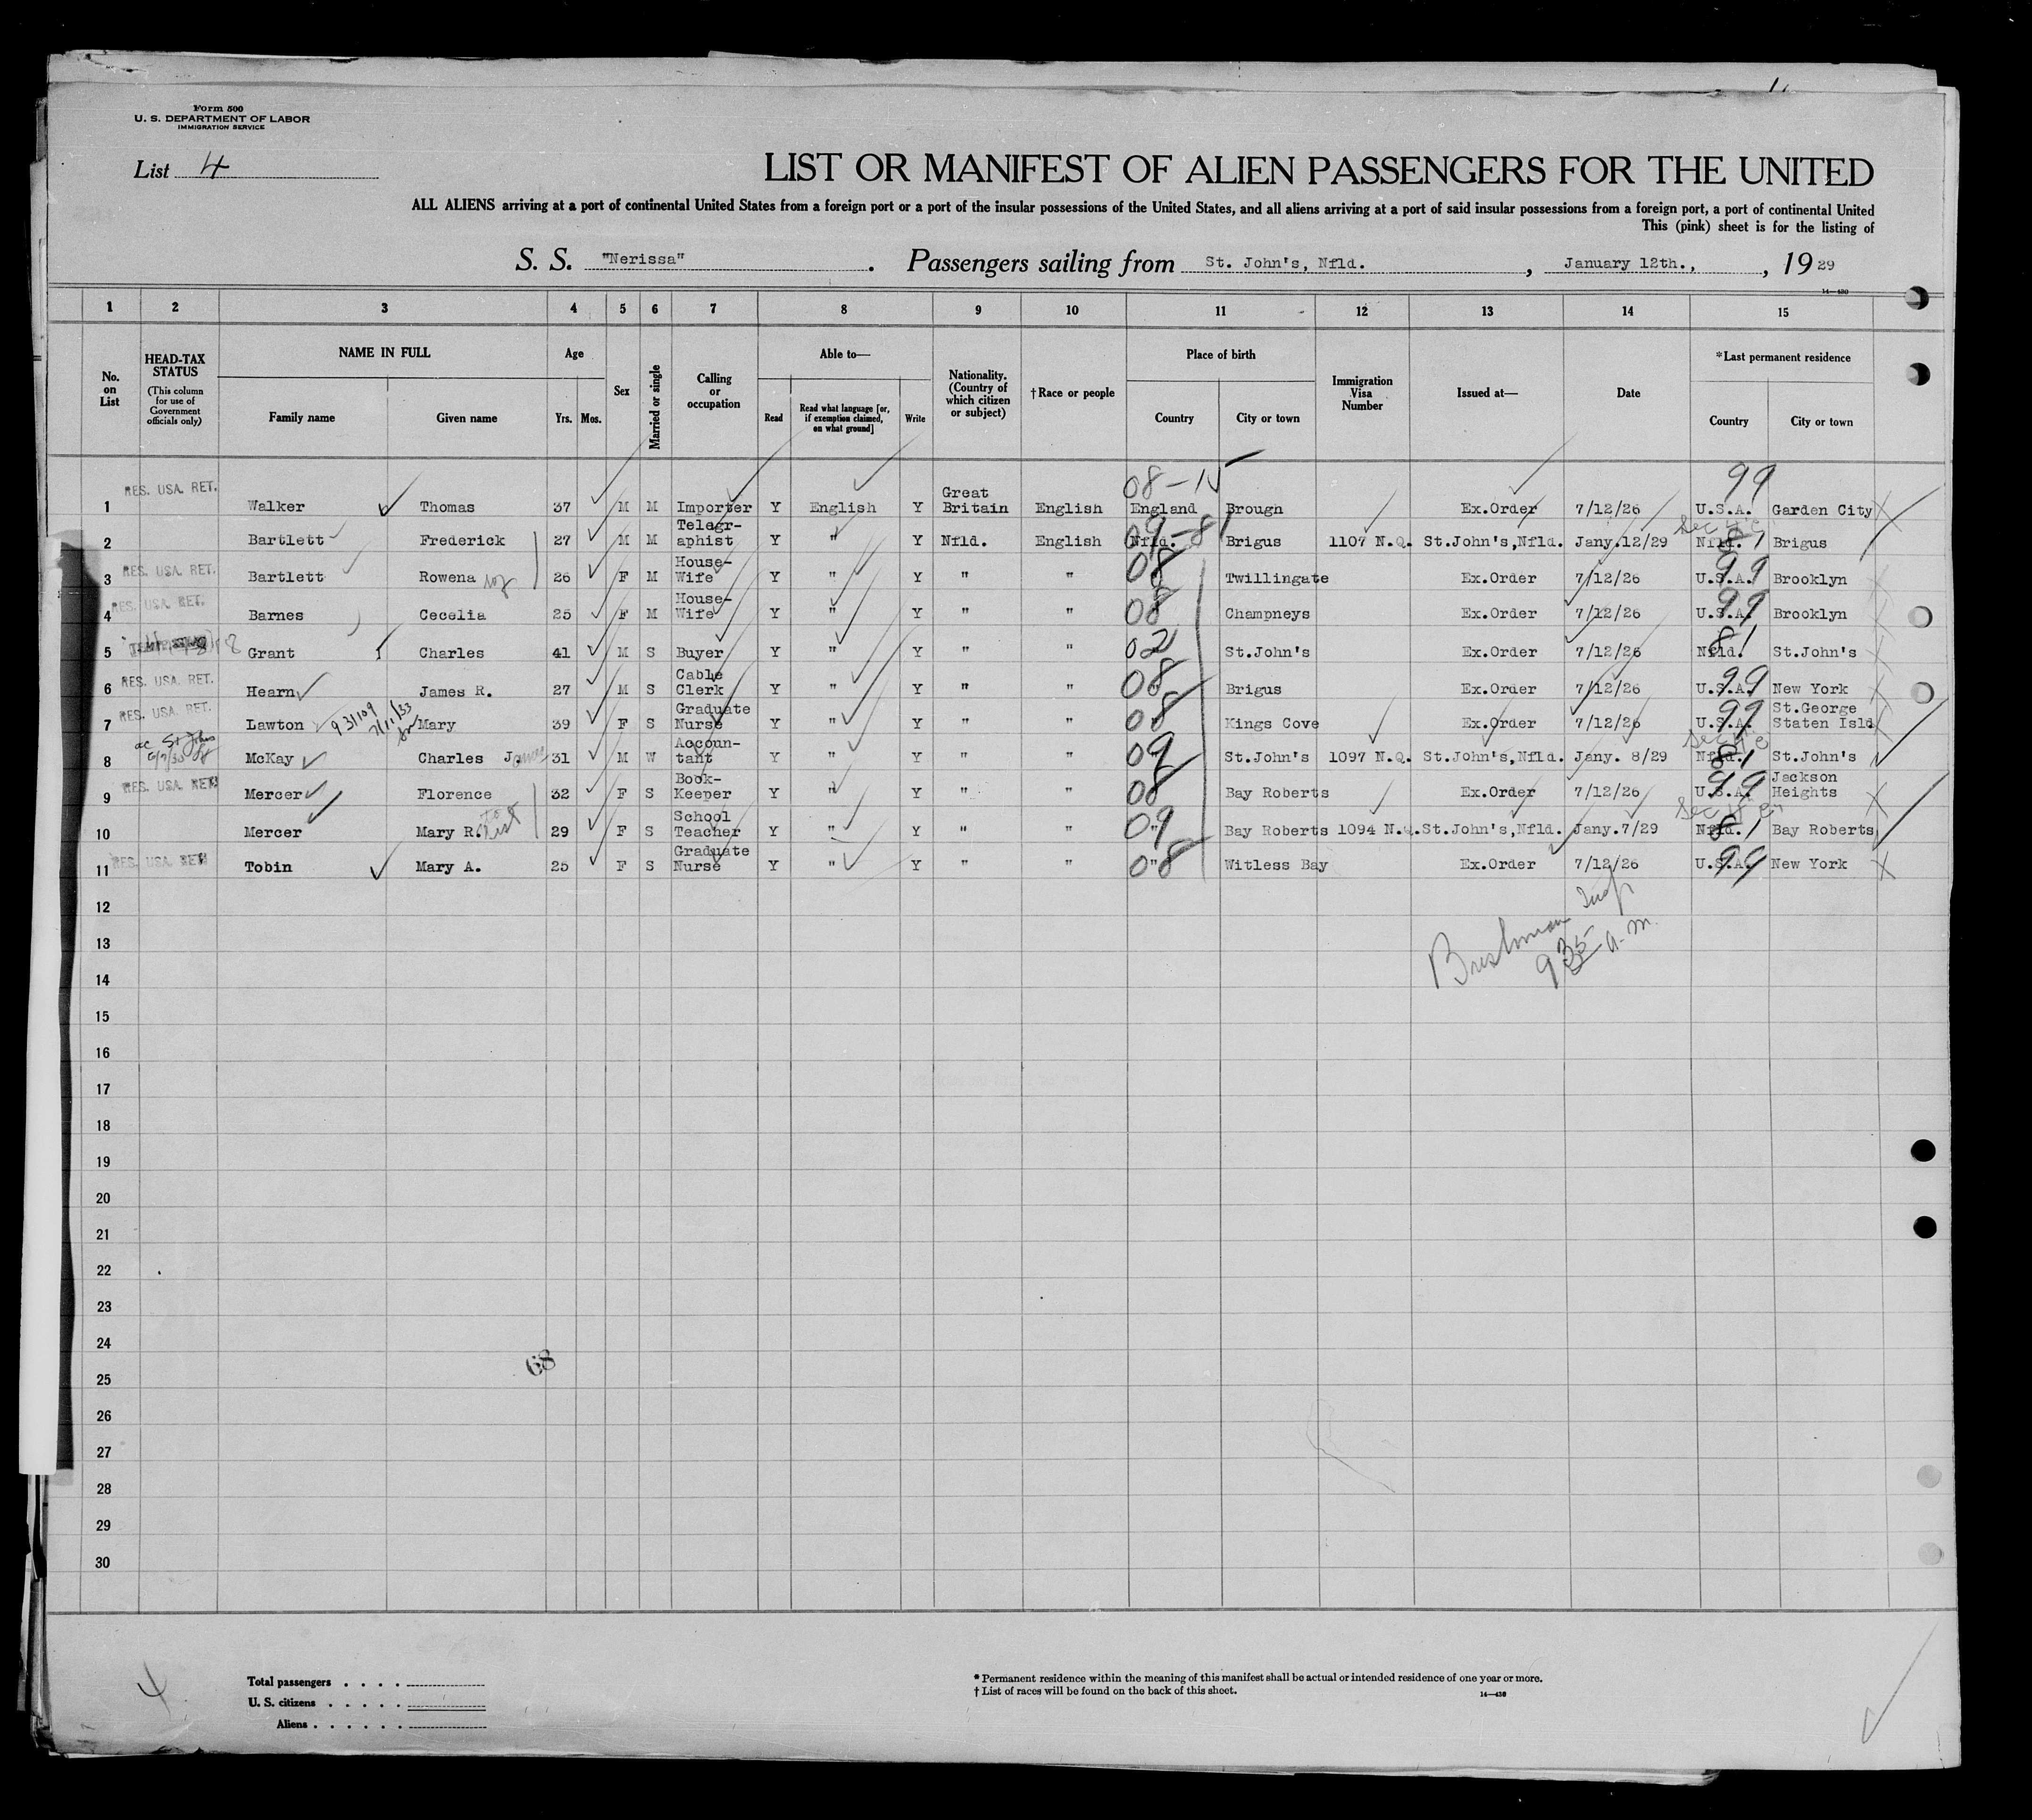 Form 500
U. S. DEPARTMENT OF LABOR
IMMIGRATION SERVICE
List 4
LIST OR MANIFEST OF ALIEN PASSENGERS FOR THE UNITED
ALL ALIENS arriving at a port of continental United States from a foreign port or a port of the insular possessions of the United States, and all aliens arriving at a port of said insular possessions from a foreign port, a port of continental United
This (pink) sheet is for the listing of
S. S. "Nerissa". Passengers sailing from St. John's, Nfld., January 12th., , 1929
14—430
1 2 3 4 5 6 7 8 9 10 11 12 13 14 15
No. on List
HEAD-TAX STATUS (This column for use of Government officials only)
NAME IN FULL Family name Given name
Age Yrs. Mos.
Sex
Married or single
Calling or occupation
Able to— Read Read what language [or, if exemption claimed, on what ground] Write
Nationality. (Country of which citizen or subject)
†Race or people
Place of birth Country City or town
Immigration Visa Number
Issued at—
Date
*Last permanent residence Country City or town
1 RES. USA. RET. Walker Thomas 37 M M Importer Y English Y Great Britain English 08-15 England Brough Ex.Order 7/12/26 99 U.S.A. Garden City
2 Bartlett Frederick 27 M M Telegr-aphist Y " Y Nfld. English 09-81 Nfld. Brigus 1107 N.Q. St.John's,Nfld. Jany.12/29 Sec 4 c 81 Nfld. Brigus
3 RES. USA. RET. Bartlett Rowena 26 F M House-Wife Y " Y " " 08 Twillingate Ex.Order 7/12/26 99 U.S.A. Brooklyn
4 RES. USA. RET. Barnes Cecelia 25 F M House-Wife Y " Y " " 08 Champneys Ex.Order 7/12/26 99 U.S.A. Brooklyn
5 Grant Charles 41 M S Buyer Y " Y " " 02 St.John's Ex.Order 7/12/26 81 Nfld. St.John's
6 RES. USA. RET. Hearn James R. 27 M S Cable Clerk Y " Y " " 08 Brigus Ex.Order 7/12/26 99 U.S.A. New York
7 RES. USA. RET. Lawton 93/109 7/11/33 Mary 39 F S Graduate Nurse Y " Y " " 08 Kings Cove Ex.Order 7/12/26 99 U.S.A. St.George Staten Isld
8 McKay Charles James 31 M W Accoun-tant Y " Y " " 09 St.John's 1097 N.Q. St.John's,Nfld. Jany. 8/29 Sec 4 c 81 Nfld. St.John's
9 RES. USA. RET. Mercer Florence 32 F S Book-Keeper Y " Y " " 08 Bay Roberts Ex.Order 7/12/26 99 U.S.A. Jackson Heights
10 Mercer Mary R. 29 F S School Teacher Y " Y " " 09 " Bay Roberts 1094 N.Q. St.John's,Nfld. Jany.7/29 Sec 4 81 Nfld. Bay Roberts
11 RES. USA. RET. Tobin Mary A. 25 F S Graduate Nurse Y " Y " " 08 " Witless Bay Ex.Order 7/12/26 99 U.S.A. New York
12
Bushman Insp
13
935 a.m.
14
15
16
17
18
19
20
21
22
23
24
68
25
26
27
28
29
30
4
Total passengers . . . .
U. S. citizens . . . . .
Aliens . . . . . .
* Permanent residence within the meaning of this manifest shall be actual or intended residence of one year or more.
† List of races will be found on the back of this sheet.
14—430